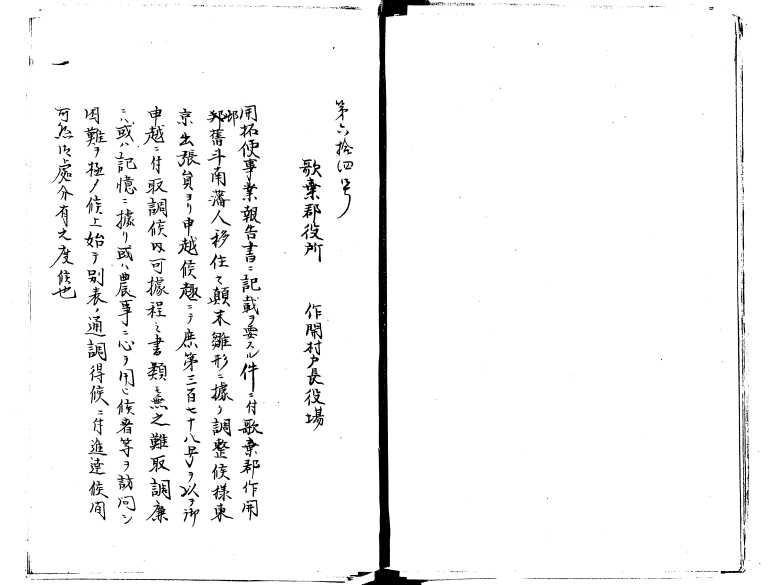 第六拾四号
歌棄郡役所　作開村戸長役場
開拓使事業報告書ニ記載ヲ要スル件ニ付歌棄郡作開
邨舊斗南藩人移住之顛末雛形ニ據リ調整候様東
京出張員ヨリ申越候趣ニテ庶第三百七十八号ヲ以テ御
申越ニ付取調候処可據程之書類モ無之難取調廉
ハ或ハ記憶ニ據リ或ハ農事ニ心ヲ用ヒ候者等ヲ訪問シ
困難ヲ極メ候上始テ別表之通調得候ニ付進達候間
可然御處分有之度候也
一